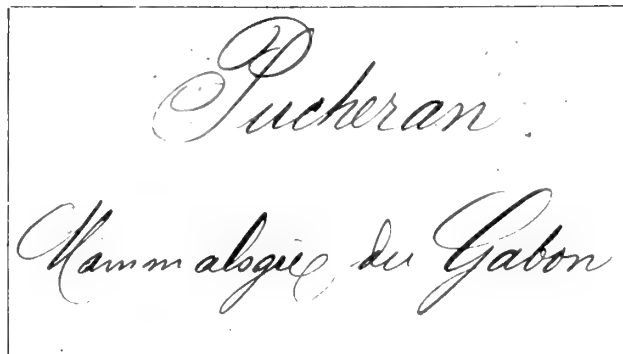 Pucheran.
Mammalogie du Gabon